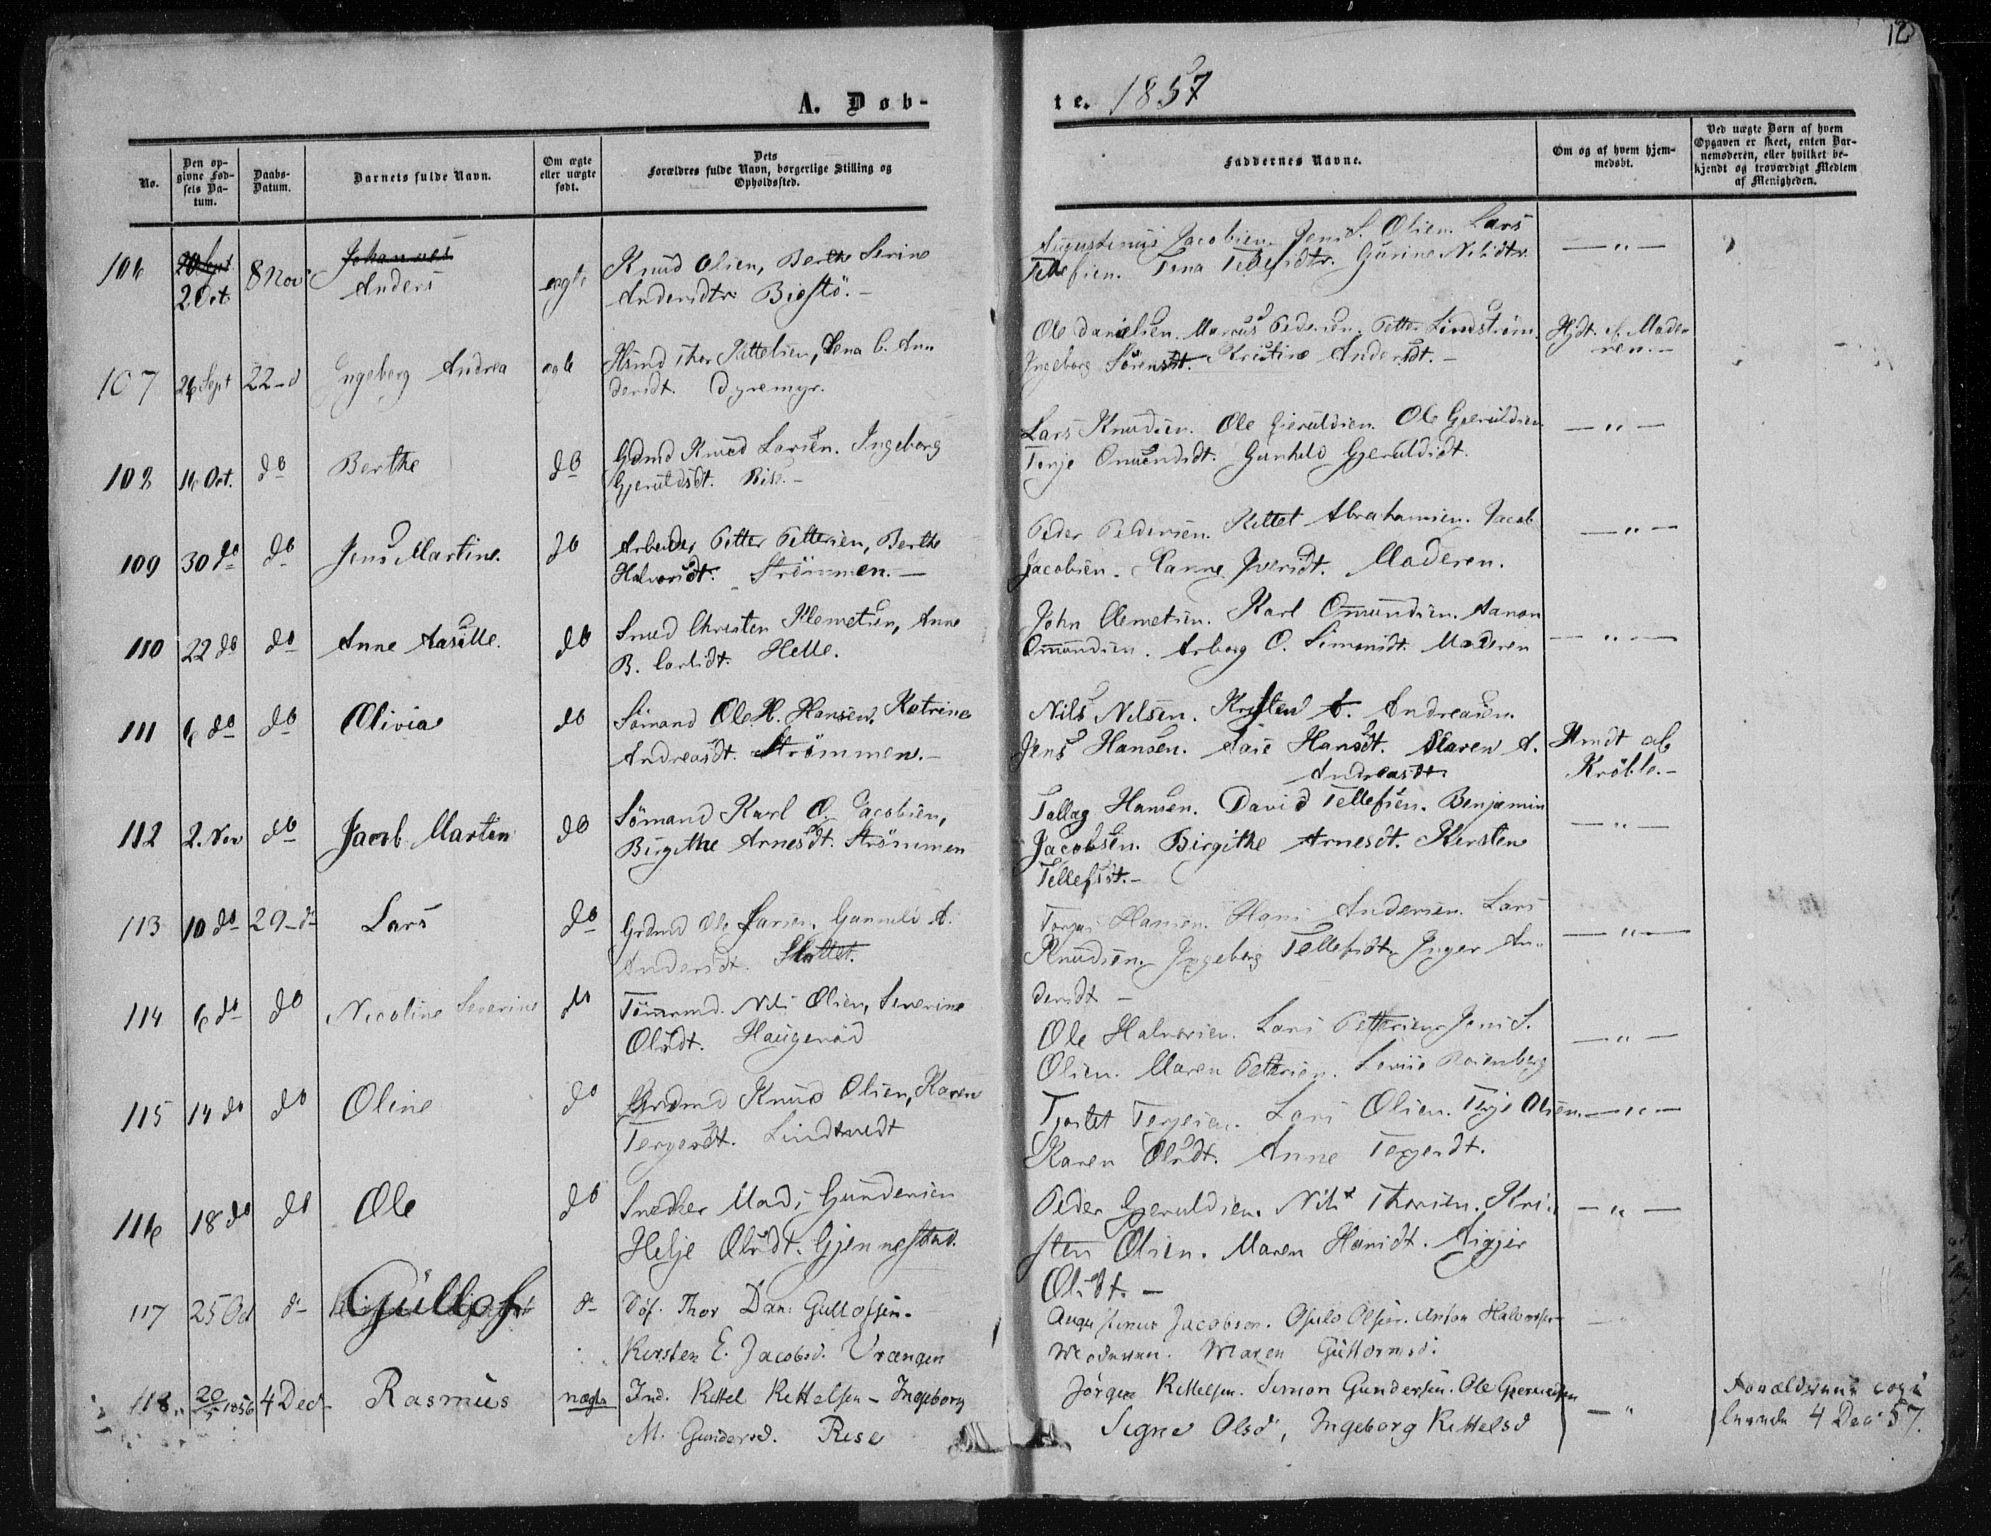 12
A. Døb-
te. 1857
No.
Den op-
givne Fød-
sels Da-
tum.
Daabs-
Datum.
Barnets fulde Navn.
Om ægte
eller uægte
født.
Dets
Forældres fulde Navn, borgerlige Stilling og
Opholdssted.
Faddernes Navne.
Om og af hvem hjem-
medøbt.
Ved uægte Børn af hvem
Opgaven er skeet, enten Bar-
nemoderen, eller hvilket be-
kjendt og troværdigt Medlem
af Menigheden.
106 20 Sept 2 Oct. 8 Nov Johannes Anders ægte
Knud Olsen, Berthe Serine
Andersdtr Biestö. -
Augustinus Jacobsen. Jens S. Olsen. Lars
Tellefsen. Tena Tellefsdtr. Gurine Nilsdtr.
— „ —
107 26 Sept 22 - d Engeborg Andrea ægte
Hsmd Thor Kittelsen, Lena C. An-
dersdt. Dyremyr.
Ole Danielsen. Marcus Pedersen. Petter Lindström.
Ingeborg Sörensdt. Kristine Andersdt. -
Hjdt. af Mode-
ren. -
108 16 Oct. do Berthe do
Grdmd Knud Larsen. Ingeborg
Gjeruldsdt. Rise. -
Lars Knudsen. Ole Gjeruldsen. Ole Gjeruldsen
Terje Omundsdt. Gunhild Gjeruldsdt.
— „ —
109 30 do do Jens Martin. do
Arbeider Petter Pettersen, Berthe
Halvorsdt. Strömmen. —
Peder Pedersen. Kittel Abrahamsen. Jacob
Jacobsen. Hanne Iversdt. Moderen.
— „ —
110 22 do do Anne Aasille. do
Smed Christen Klemetsen, Anne
B. Carlsdt. Helle.
John Clemetsen. Karl Omundsen. Aanon
Omundsen. Arborg O. Simonsdt. Moderen
— „ —
111 6 do do Olivia do
Sömand Ole H. Hansen, Katrine
Andreasdt. Strömmen. -
Nils Nilsen. Kristen A. Andreasen.
Jens Hansen. Aase Hansdt. Maren A.
Andreasdt.
Hmdt af
Kröble. -
112 2. Nov do Jacob Marten do
Sömand Karl O. Jacobsen,
Birgithe Arnesdt. Strömmen
Tallag Hansen. David Tellefsen. Benjamin
Jacobsen. Birgithe Arnesdt. Kirsten
Tellefsdt. -
— „ —
113 10 do 29 - do Lars do
Grdmd Ole Larsen, Gunnild A.
Andersdt. Slottet.
Hansen. Hans Andersen. Lars
Knudsen. Ingeborg Tellefsdt. Inger An-
dersdt —
— „ —
114 6 do do Nicoline Severine do
Tömrmd. Nils Olsen, Severine
Olsdt. Haugeröd
Ole Halvorsen. Lars Pettersen. Jens S.
Olsen. Maren Pettersen. Rosenberg
— „ —
115 14 do do Oline do
Grdmd Knud Olsen, Karen
Tergesdt. Lindtvedt
Tjostel Terjesen. Lars Olsen. Terje Olsen.
Karen Olsdt. Anne Tergesdt.
— „ —
116 18 do do Ole do
Snedker Mads Gundersen
Helje Olsdt. Gjennestad.
Peder Gjeruldsen. Nils Thorsen. Kri-
sten Olsen. Maren Hansdt. Sigjer
Olsdt. —
— „ —
117 25 Oct d- Güllof d-
Söf. Thor Dan: Gullofsen.
Kirsten E. Jacobsd. Vrangen
Augustinus Jacobsen. Osulo Olsen. Anton Halvorsen
Moderen. Maren Güttormsd.
— „
118 20/5 1856 4 Dec Rasmus uægte
Ind. Kittel Kittelsen - Ingeborg
M. Gundersd. Rise
Jörgen Kittelsen. Simon Gundersen. Ole Gjeruldsen
Signe Olsd, Ingeborg Kittelsd
— „
Forældrene copu
lerede 4 Dec 57.